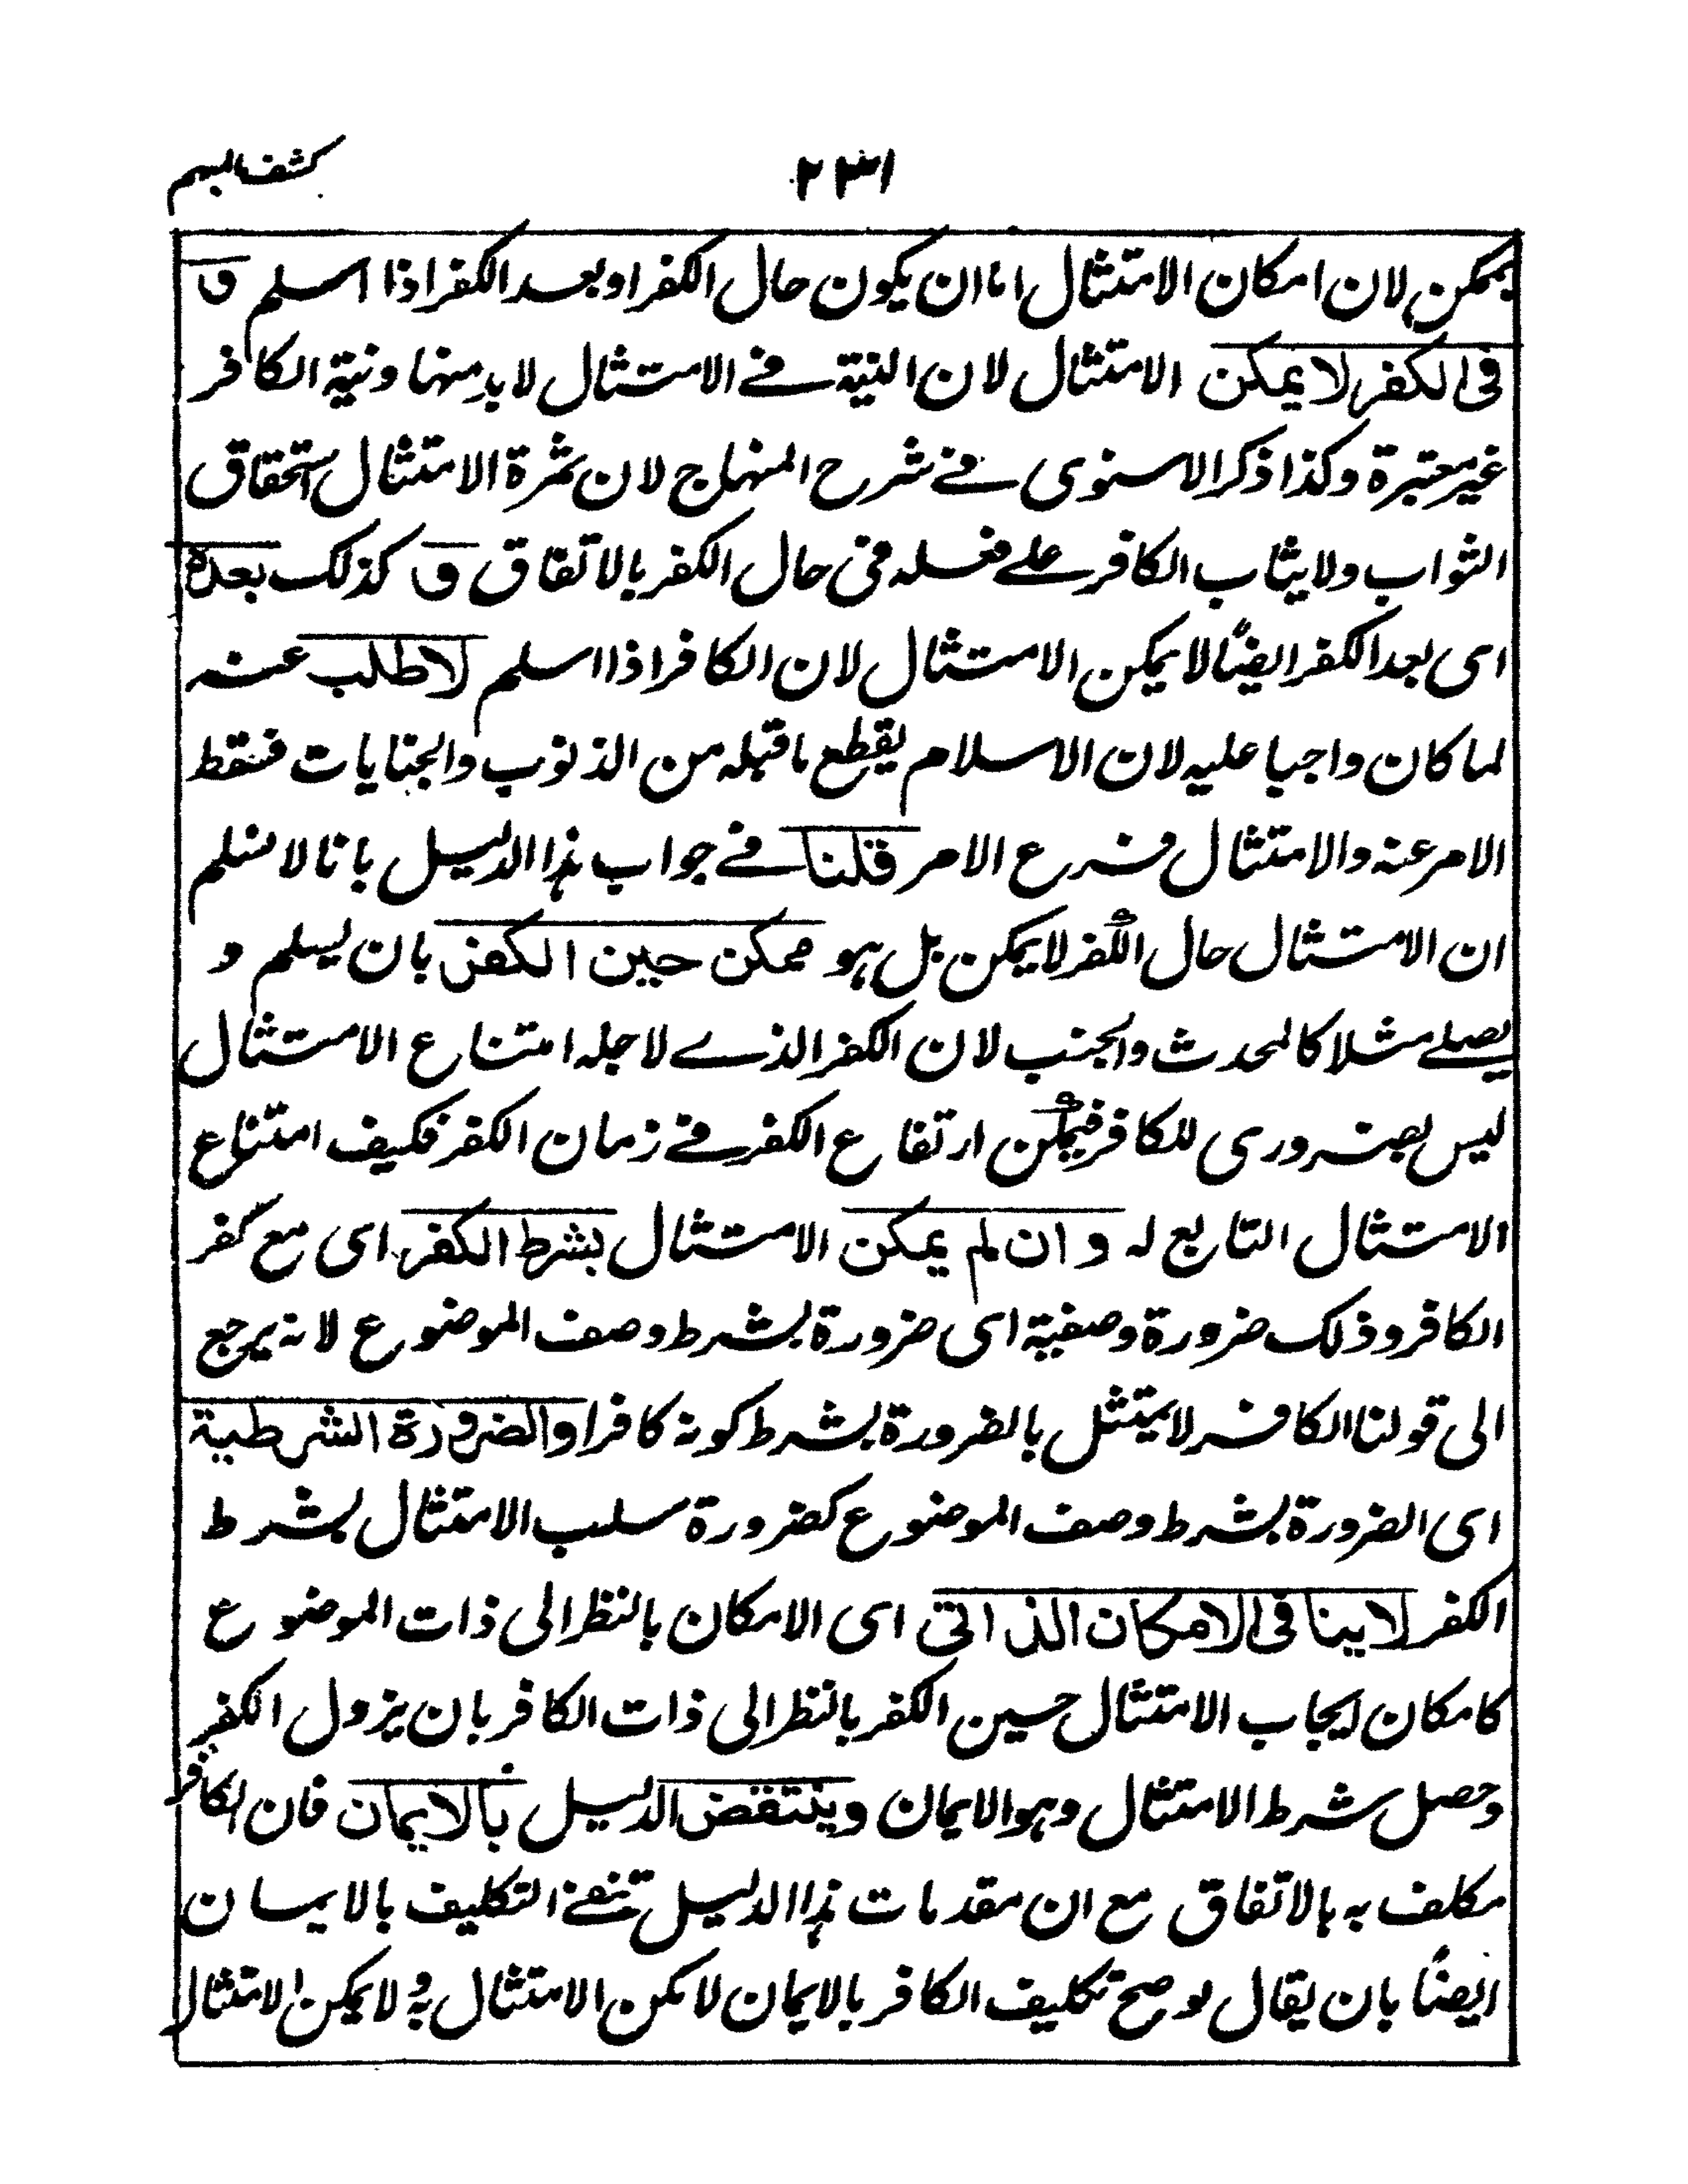 كشف المبهم
٢٣١
يمكن لان امكان الامتثال اما ان يكون حال الكفر او بعد الكفر اذا اسلم و
فى الكفر لا يمكن الامتثال لان النية في الامتثال لا بد منها ونية الكافر
غير معتبرة وكذا ذكر الاسنوى في شرح المنهاج لان ثمرة الامتثال استحقاق
الثواب ولا يثاب الكافر على فعله في حال الكفر بالاتفاق و كذلك بعده
اى بعد الكفر ايضًا لا يمكن الامتثال لان الكافر اذا اسلم لا طلب عنه
لما كان واجبا عليه لان الاسلام يقطع ما قبله من الذنوب والجنايات فسقط
الامر عنه والامتثال فرع الامر قلنا في جواب هذا الدليل بانا لا نسلم
ان الامتثال حال الكفر لا يمكن بل هو ممكن حين الكفر بان يسلم و
يصلے مثلا كالمحدث والجنب لان الكفر الذے لاجله امتناع الامتثال
ليس بضرورى للكافر فيمكن ارتفاع الكفر في زمان الكفر فكيف امتناع
الامتثال التابع له و ان لم يمكن الامتثال بشرط الكفر اى مع كفر
الكافر وذلك ضرورة وصفية اى ضرورة بشرط وصف الموضوع لانه يرجع
الى قولنا الكافر لا يمتثل بالضرورة بشرط كونه كافرا والضرورة الشرطية
اى الضرورة بشرط وصف الموضوع كضرورة سلب الامتثال بشرط
الكفر لا ينافى الامكان الذاتى اى الامكان بالنظر الى ذات الموضوع
كامكان ايجاب الامتثال حين الكفر بالنظر الى ذات الكافر بان يزول الكفر
وحصل شرط الامتثال وهو الايمان وينتقض الدليل بالايمان فان الكافر
مكلف به بالاتفاق مع ان مقدمات هذا الدليل تنفے التكليف بالايمان
ايضًا بان يقال لو صح تكليف الكافر بالايمان لامكن الامتثال به ولا يمكن الامتثال